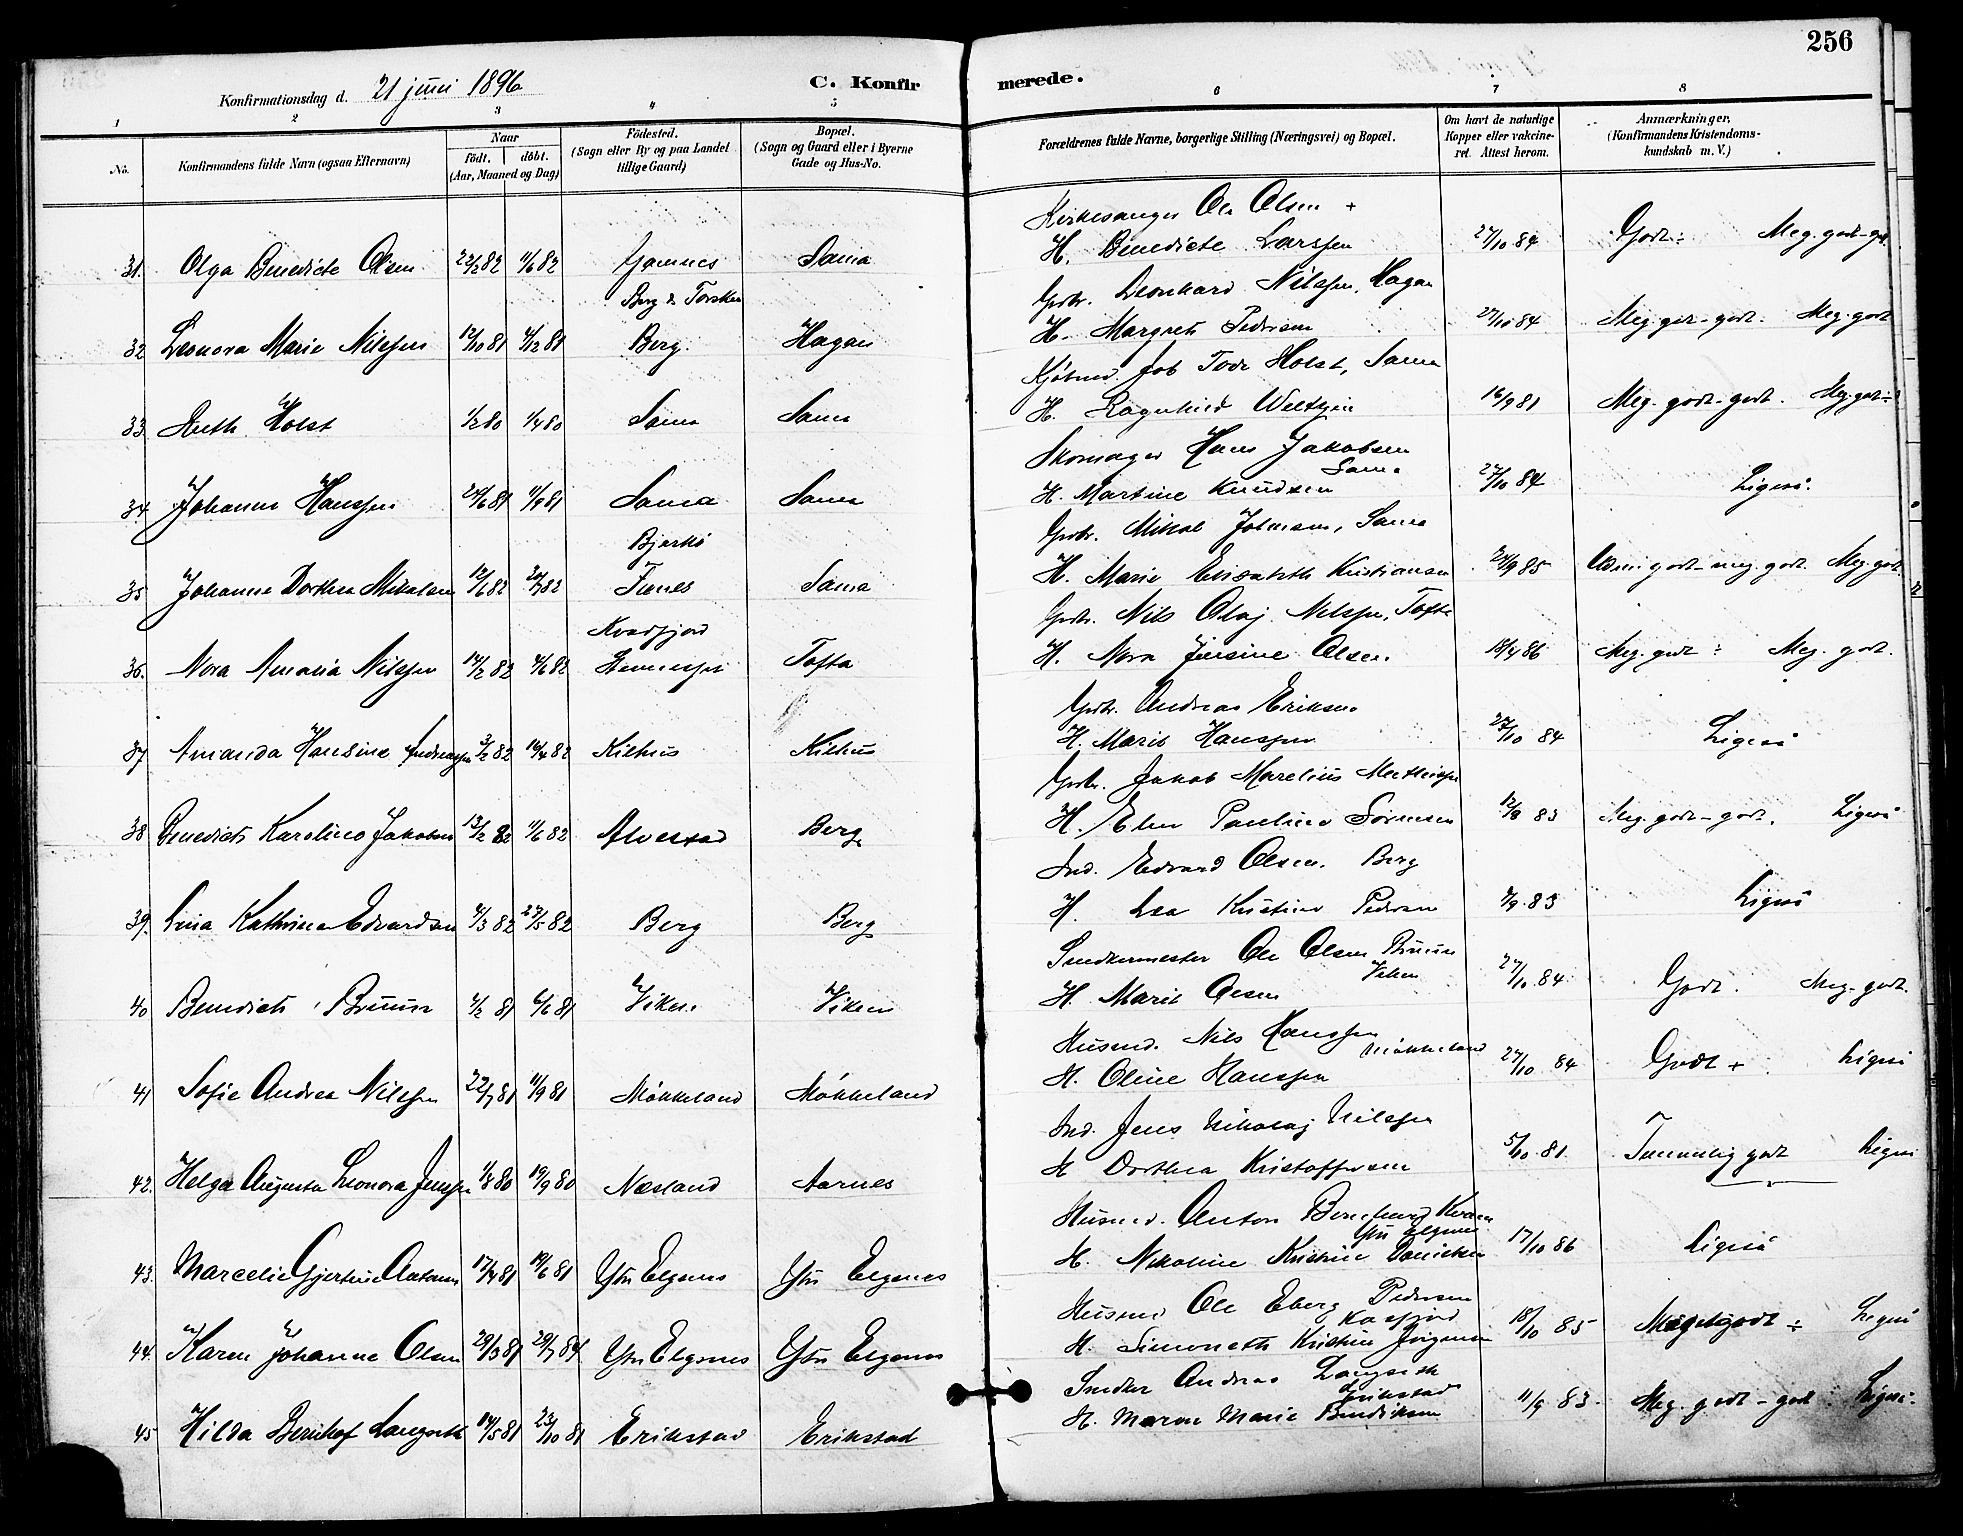 256
Konfirmationsdag d. 21 juni 1896
C. Konfir merede.
1 2 3 4 5 6 7 8
No.
Konfirmandens fulde Navn (ogsaa Efternavn)
Naar
født. døbt.
(Aar, Maaned og Dag)
Fødested.
(Sogn eller By og paa Landet
tillige Gaard)
Bopæl.
(Sogn og Gaard eller i Byerne
Gade og Hus-No.
Forældrenes fulde Navne, borgerlige Stilling (Næringsvei) og Bopæl.
Om havt de naturlige
Kopper eller vakcine-
ret. Attest herom.
Anmærkninger,
(Konfirmandens Kristendoms-
kundskab m. V.)
Kirkesanger Ole Olsen +
31. Olga Benedicte Olsen 22/2 82 11/6 82 Sama H. Benedicte Larssen 27/10 84 Godt ÷ Meg. godt - gdt.
Berg & Torsken Gbr. Leonhard Nilssen, Hagan
32 Leonora Marie Nilssen 12/10 81 4/12 81 Berg. Hagan H. Margrete Pedersen 27/10 84 Meg. godt - godt. Meg. godt
Kjøbmd. Job Tode Holst, Sama
33. Ruth Holst 1/2 80 1/4 80 Sama Sama H. Ragnhild 16/9 81 Meg. godt - godt. Meg. godt ÷
Skomager Hans Jakobsen
Sama
34. Johanne Hanssen 24/6 81 11/9 81 Sama Sama H. Martine Knudsen 27/10 84 Ligeså.
Bjarkö Gbr. Mikal Johnsen, Sama
35 Johanne Dorthea Mikalsen 12/6 82 Sama H. Marie Elisabeth Kristiansen 24/9 85 Udm. godt - meg. godt. Meg. godt.
Kvædfjord Gbr. Nils Olaj Nilssen, Tofta
36. Nora Amalia Nilssen 14/2 82 4/6 82 Tofta H. Nora Jensine Olsen. 18/9 86 Meg. godt ÷ Meg. godt.
Gbr. Andreas Eriksen
37 Amanda Hansine Andreassen 3/2 82 16/4 82 Kilhus Kilhus H. Marit Hanssen 27/10 84 Ligeså
Gbr. Jakob Marelius Mathisen
38 Benedicte Karoline Jakobsen 13/2 82 11/6 82 Alvestad Berg H. Elen Pauline Sörensen 12/9 83 Meg. godt - godt. Ligeså
Ind. Edvard Olsen. Berg
39. Lina Kathrine Edvardsen 4/3 82 27/5 82 Berg Berg H. Lea Kristine Pedersen 11/9 83 Ligeså
Snedkermester Ole Olsen Bruun
Viken
40 Benedicte Bruun 4/2 81 6/6 81 Viken Viken H. Marit Olsen 27/10 84. Godt. Meg. godt.
Husmd. Nils Hanssen
Møkkeland
41 Sofie Andrea Nilssen 22/7 81 11/9 81 Møkkeland Møkkeland H. Oline Hanssen 27/10 84 Godt + Ligeså
Ind. Jens Nikolaj Nilssen
42. Helga Augusta Leonora Jenssen 1/8 80 19/9 80 Næsland Aarnes H. Dorthea Kristoffersen 5/10 81. Temmelig godt Ligeså
Husmd. Anton Bernhard Kvæn
Ytre Elgsnes
43. Marcelie Gjertine Antonsen 17/4 81 19/6 81 Ytre Elgsnes Ytre Elgsnes H. Nikoline Kristine Danielsen 17/10 86 Ligeså
Husmd Ole Eberg Pedersen
Kasfjord
44. Karen Johanne Olsen 29/3 81 29/7 84 Ytre Elgsnes Ytre Elgsnes H. Simoneth Kristine Jörgensen 18/10 85 Meget godt ÷ Ligeså
Snedker Andreas Langseth
Erikstad
45 Hilda Bernhof Langseth 14/5 81 23/10 81 Erikstad Erikstad H. Maren Marie Bendiksen 11/9 83. Meg. godt - godt. Ligeså.